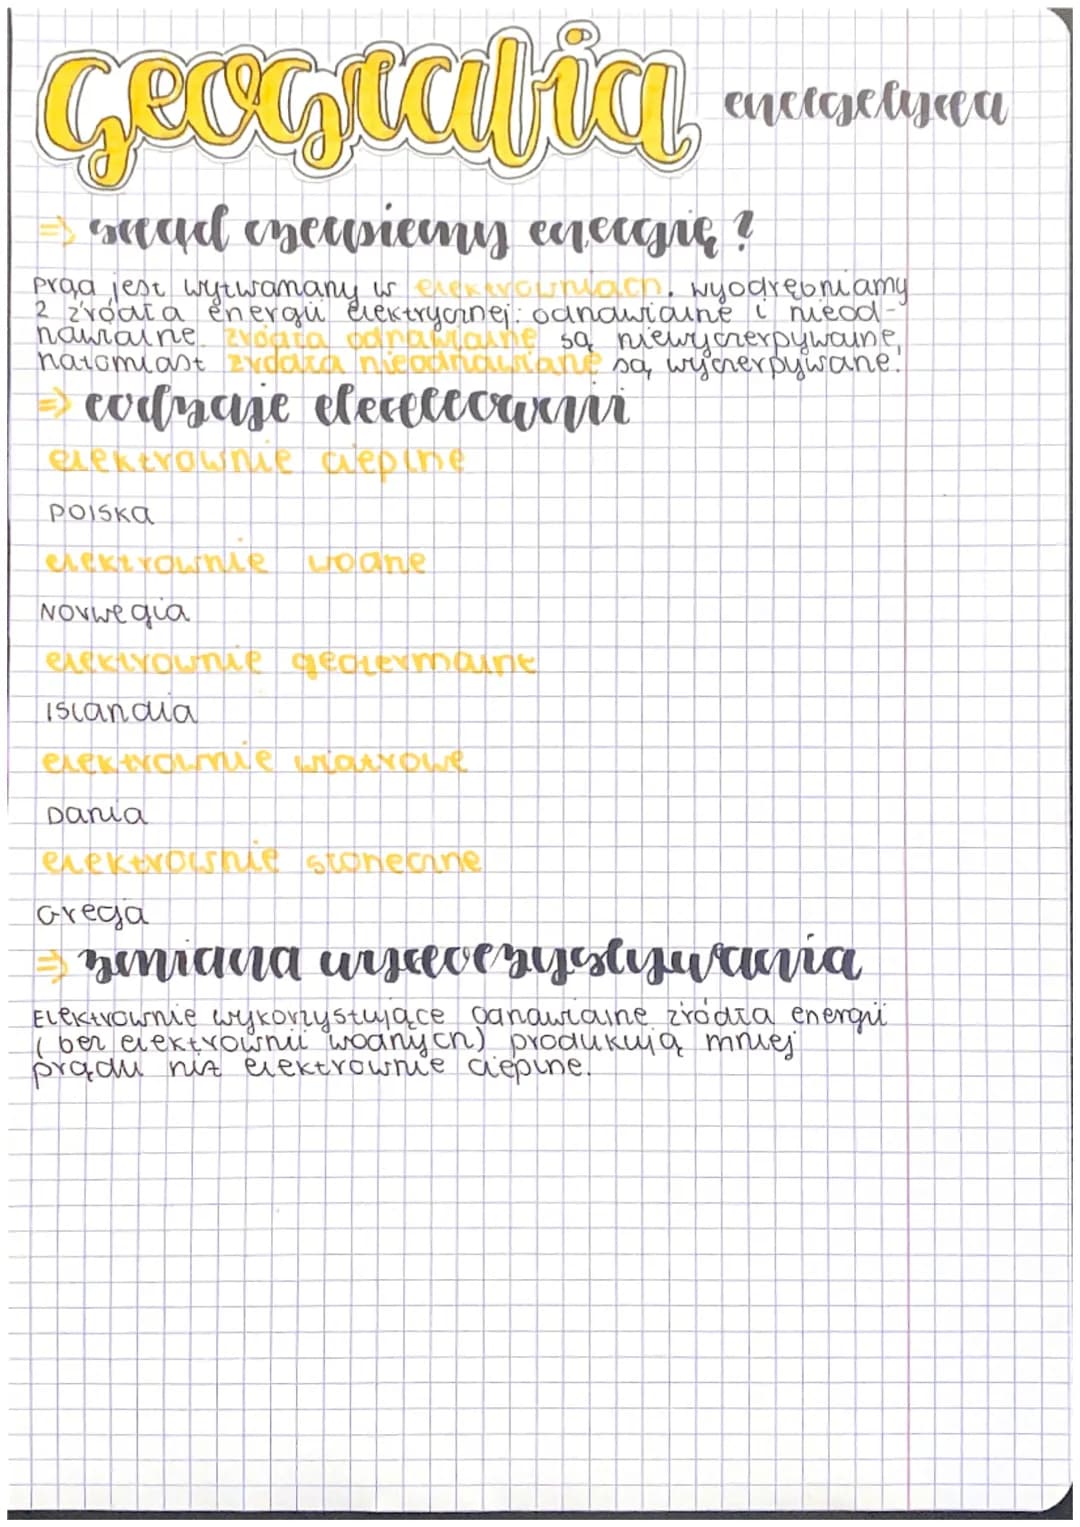 geografia energetyka
=> skąd czerpiemy energię?
prąd jest wytwarzany w elektrowniach. wyodrębniamy
2 źródła energii elektrycznej: odnawialne i nieod-
nawialne. źródła odnawialne są niewyczerpywalne,
natomiast źródła nieodnawialne są wyczerpywane.
=> rodzaje elektrowni
elektrownie cieplne
polska
elektrownie wodne
Norwegia
elektrownie geotermalne
islandia
elektrownie wiatrowe
Dania
elektrownie słoneczne
Grecja
=> zmiana wykorzystywania
Elektrownie wykorzystujące odnawialne źródła energii
(bez elektrowni wodnych) produkują mniej
prądu niż elektrownie cieplne.